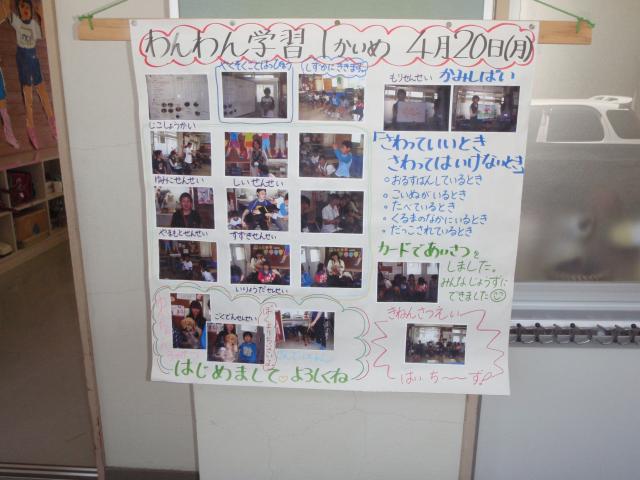 わんわん学習1かいめ 4月20日(月)
やくそくことはっぴょう
しずかにききます。
じこしょうかい
ゆみこせんせい
しいせんせい
やまもとせんせい
すずきせんせい
いりょうだせんせい
ごとでんせんせい
はじめまして よろしくね
もりせんせい かみしばい
「さわっていいとき
さわってはいけないとき」
○おるすばんしているとき
○こいぬがいるとき
○たべているとき
○くるまのなかにいるとき
○だっこされているとき
カードであいさつを
しました。
みんなじょうずに
できました
きねんさつえい
はい、ち〜〜ず!